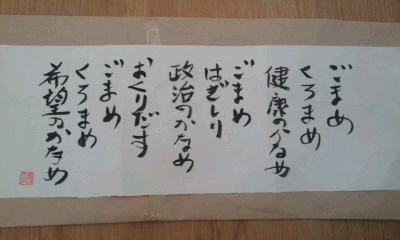 ごまめ
くろまめ
健康のかなめ
ごまめ
はぎしり
政治のかなめ
おくりだす
ごまめ
くろまめ
希望のかなめ